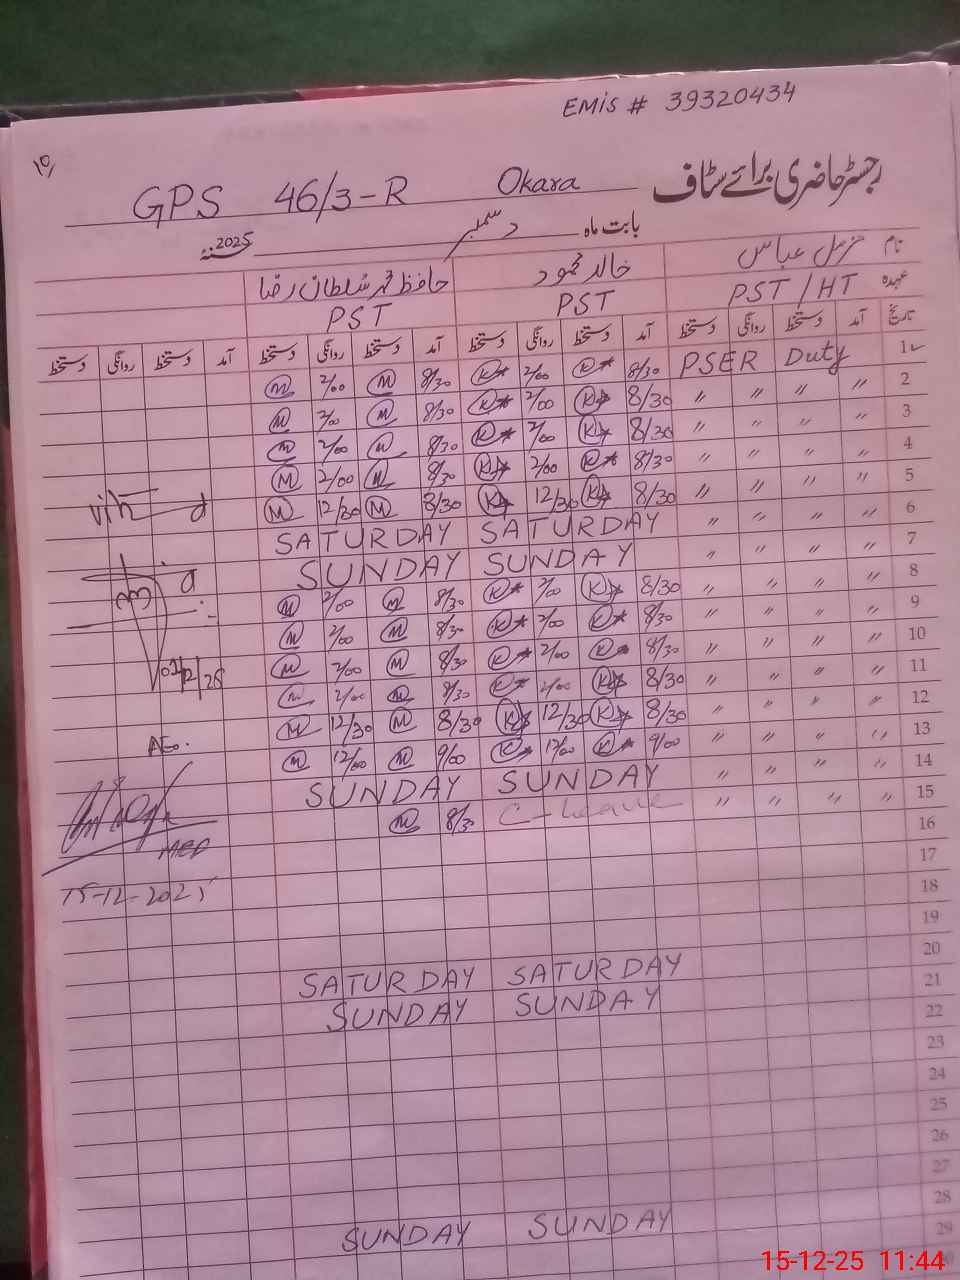 EMIS # 39320434
10/
GPS 46/3-R Okara رجسٹر حاضری برائے سٹاف
بابت ماہ دسمبر 2025
نام مزمل عباس خالد محمود حافظ محمد سلطان رضا
عہدہ PST/HT PST PST
تاریخ آمد دستخط روانگی دستخط آمد دستخط روانگی دستخط آمد دستخط روانگی دستخط آمد دستخط روانگی دستخط
1 PSER Duty 8/30 K 2/00 K 8/30 M 2/00 M
2 " " " " 8/30 K 2/00 K 8/30 M 2/00 M
3 " " " " 8/30 K 2/00 K 8/30 M 2/00 M
4 " " " " 8/30 K 2/00 K 8/30 M 2/00 M
5 " " " " 8/30 K 12/30 K 8/30 M 12/30 M
6 " " " " SATURDAY SATURDAY
7 " " " " SUNDAY SUNDAY
8 " " " " 8/30 K 2/00 K 8/30 M 2/00 M
9 " " " " 8/30 K 2/00 K 8/30 M 2/00 M
10 " " " " 8/30 K 2/00 K 8/30 M 2/00 M
11 " " " " 8/30 K 2/00 K 8/30 M 2/00 M
12 " " " " 8/30 K 12/30 K 8/30 M 12/30 M
13 " " " " 9/00 K 12/00 K 9/00 M 12/00 M
14 " " " " SUNDAY SUNDAY
15 " " " " C-Leave 8/30 M
16
17
18
19
20 SATURDAY SATURDAY
21 SUNDAY SUNDAY
22
23
24
25
26
27
28 SUNDAY SUNDAY
29
30
AEO.
15-12-2025
15-12-25 11:44